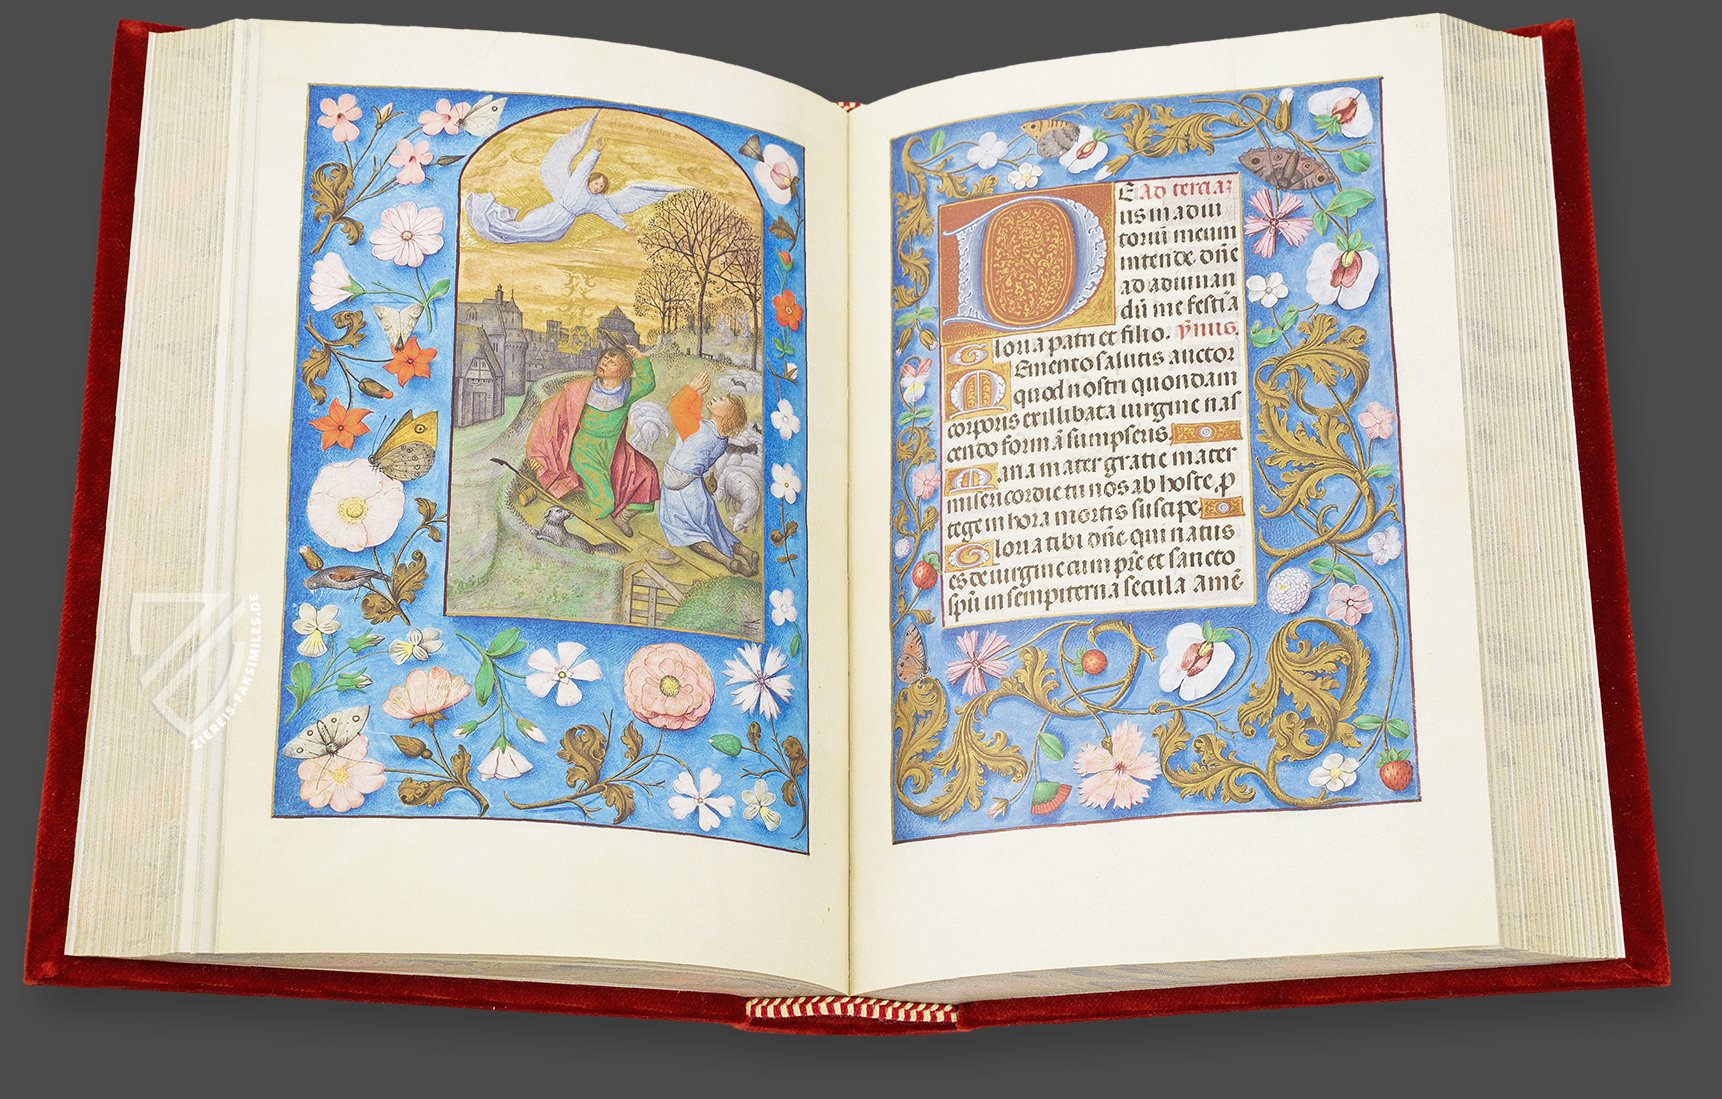 ZIEREIS-FAKSIMILES.DE
D E Ad terciaz
us in adiu
toriū meum
intende. dn̄e
ad adiuuan
dū me festīa
Gloria patri et filio. ymus.
Memento salutis auctor
quod nostri quondam
corporis ex illibata uirgine nas
cendo formā sumpseris.
Maria mater gratie mater
misericordie tu nōs ab hoste, p
tege in hora mortis suscipe
Gloria tibi dn̄e qui natus
es de uirgine cum pr̄e et sancto
spū in sempiterna secula amē